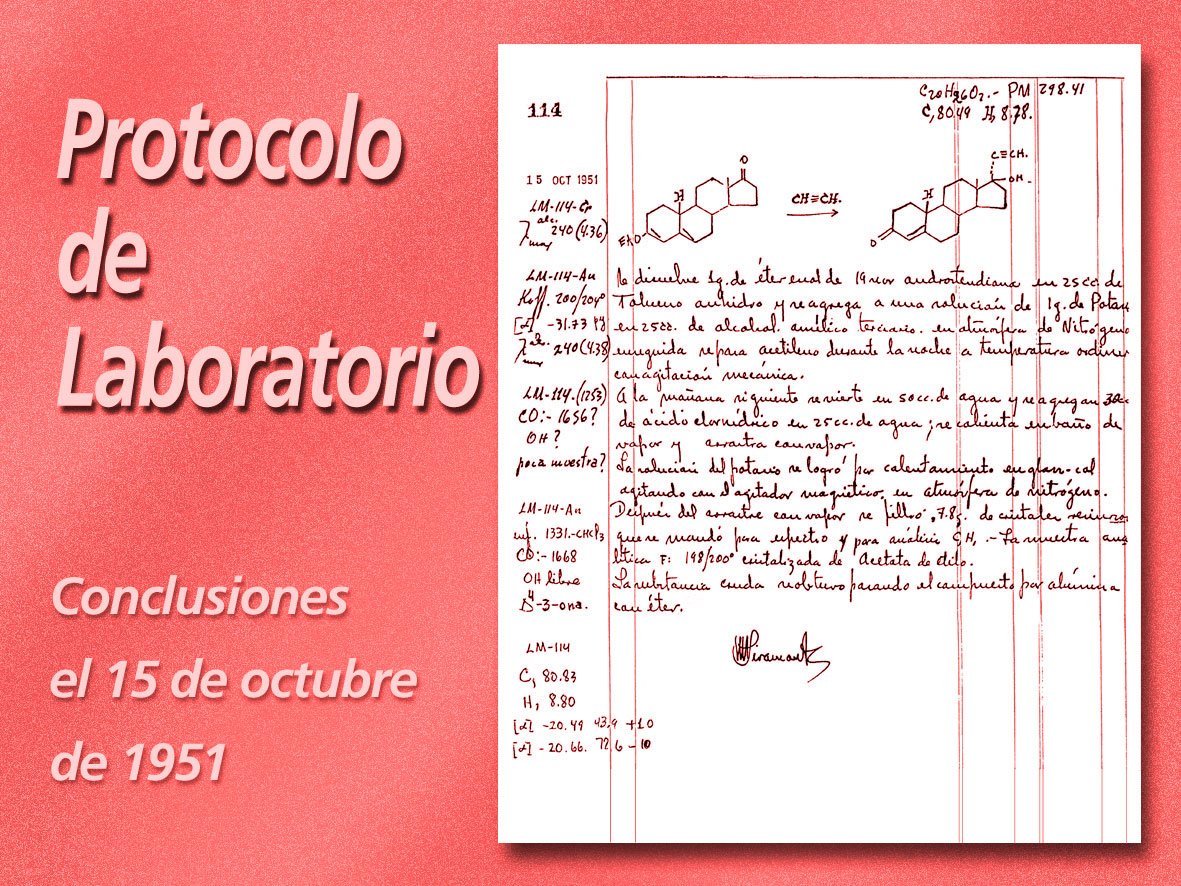 Protocolo
de
Laboratorio
Conclusiones
el 15 de octubre
de 1951
114
C20H26O2.- PM 298.41
C, 80.49 H, 8.78.
15 OCT 1951
LM-114-Cr
λ alc. max 240 (4.36)
H
O
EtO
CH≡CH.
C≡CH.
OH.
H
O
LM-114-An
Koff. 200/204°
[α] -31.73 Py
λ alc. max 240 (4.38)
LM-114. (1253)
CO:- 1656?
OH?
poca muestra?
LM-114-An
inf. 1331.-CHCl3
CO:- 1668
OH libre
Δ4-3-ona.
LM-114
C, 80.83
H, 8.80
[α] -20.49 43.9 +10
[α] -20.66. 72.6 -10
Se disuelve 1g. de éter enol de 19 nor androstendiona en 25cc. de
Tolueno anhidro y se agrega a una solución de 1g. de Potasi
en 25cc. de alcohol amílico terciario en atmósfera de Nitrógeno
enseguida se pasa acetileno durante la noche a temperatura ordinar
con agitación mecánica.
A la mañana siguiente se vierte en 50cc. de agua y se agregan 30cc
de ácido clorhídrico en 25cc. de agua; se calienta en baño de
vapor y arrastra con vapor.
La solución del potasio se logró por calentamiento en glas-col
agitando con el agitador magnético en atmósfera de nitrógeno.
Después del arrastre con vapor se filtró, 7.8g. de cristales
que se mandó para espectro y para análisis C, H, .- La muestra ana
lítica F: 198/200° cristalizada de Acetato de etilo.
La substancia cruda se obtuvo pasando el compuesto por alúmina
con éter.